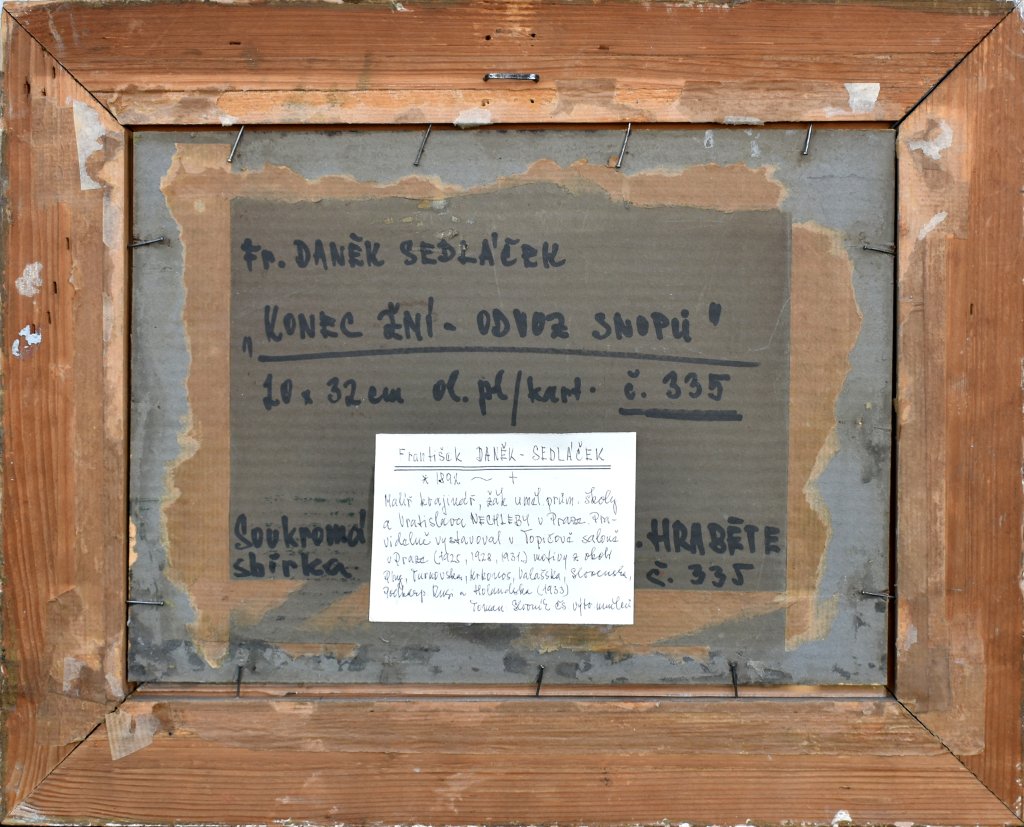 Fr. DANĚK SEDLÁČEK
„KONEC ŽNÍ - ODVOZ SNOPŮ"
20 x 32 cm ol. pl/kart. č. 335
František DANĚK - SEDLÁČEK
* 1892 ~ +
Malíř krajinář, žák uměl. prům. školy
a Vratislava NECHLEBY v Praze. Pra-
videlně vystavoval v Topičově saloně
v Praze (1925, 1928, 1931,) motivy z okolí
Turnovska, Krkonoš, Valašska, Slovenska,
Podkarp. Rusi a Holandska (1933)
Toman Slovník čs výtv umělců
Soukromá . HRABĚTE
sbírka č. 335